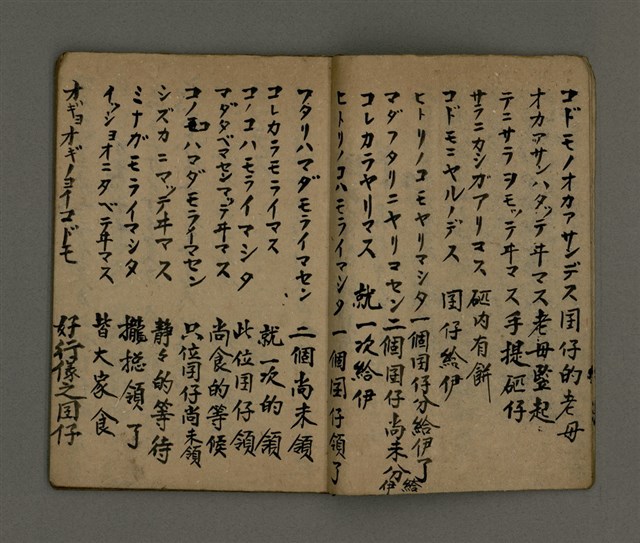 コドモノオカアサンデス 囝仔的老母
オカアサンハタッテヰマス 老母竪起
テニサラヲモッテヰマス 手提砸仔
サラニカシガアリマス 砸内有餅
コドモニヤルノデス 囝仔給伊
ヒトリノコモヤリマシタ 一個囝仔分給伊了
マダフタリニヤリマセン 二個囝仔尚未分給伊
コレカラヤリマス 就一次給伊
ヒトリノコハモライマシタ 一個囝仔領了
フタリハマダモライマセン 二個尚未領
コレカラモライマス 就一次的領
コノコハモライマシタ 此位囝仔領
マダタベマセンマッテヰマス 尚食的等候
コノ ハマダモライマセン 只位囝仔尚未領
シズカニマッテヰマス 静々的等待
ミナガモライマシタ 攏捴領了
イッショオニタベテヰマス 皆大家食
オギョオギノヨイコドモ 好行儀之囝仔